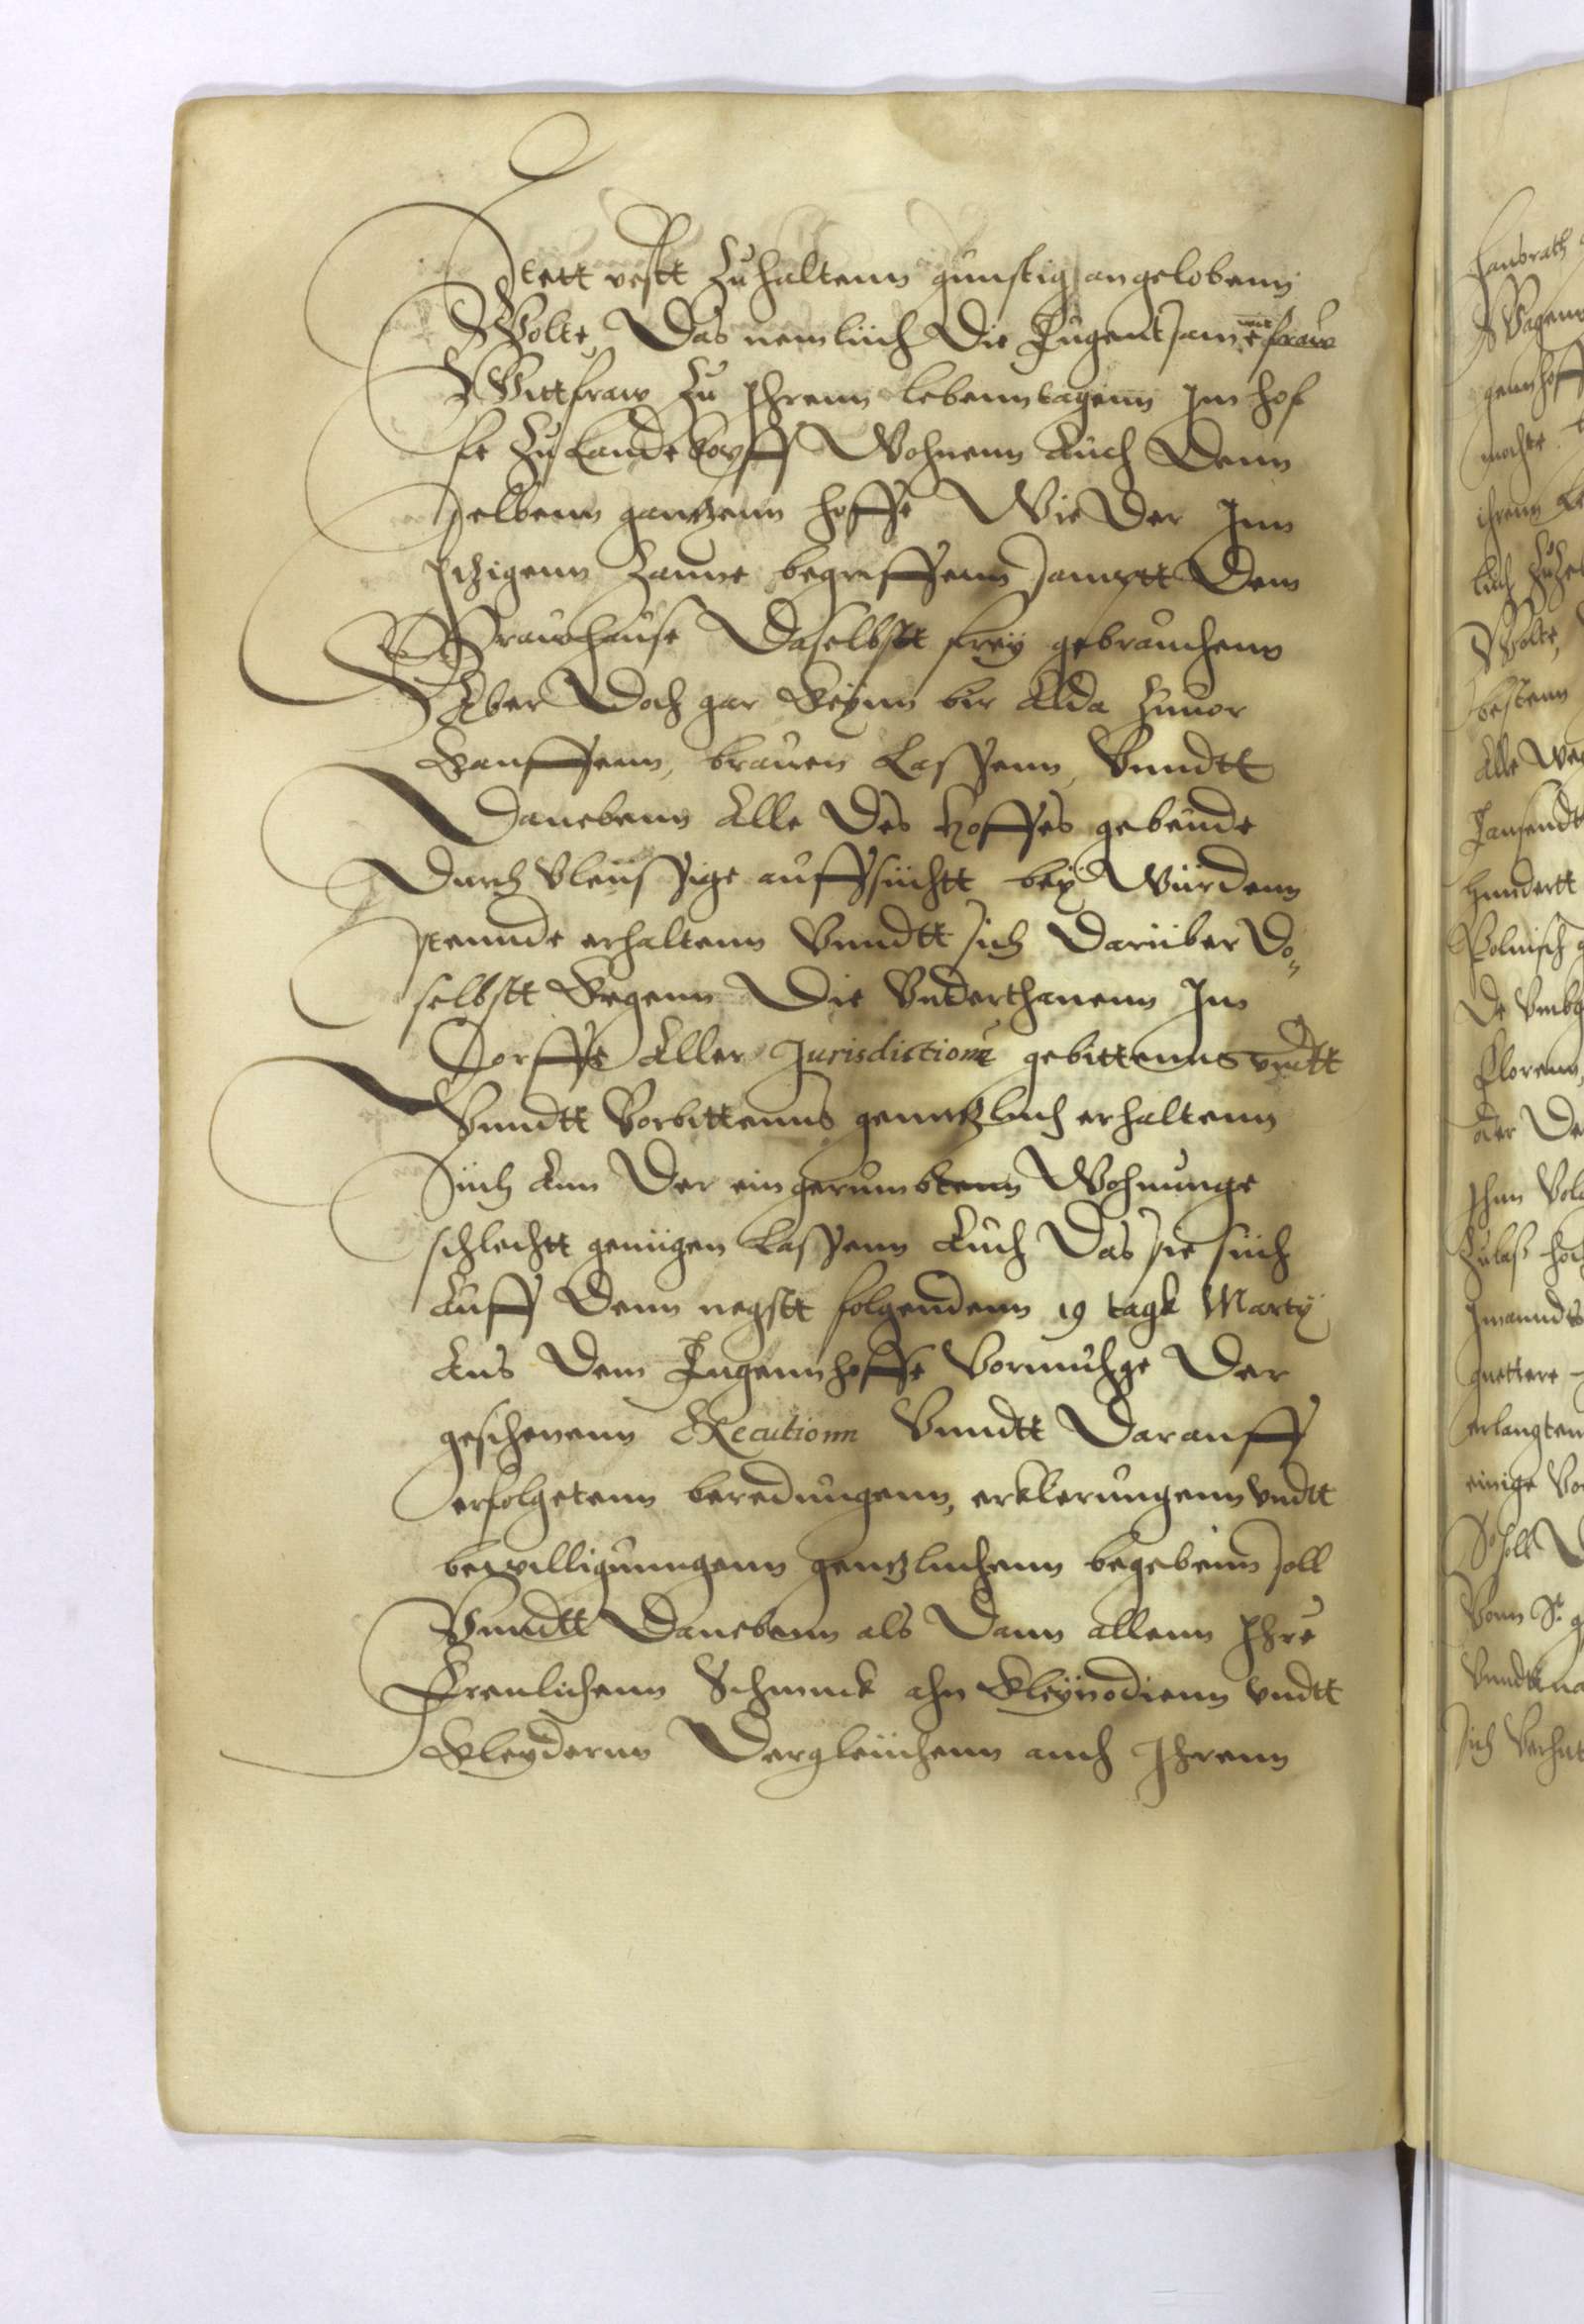 Stett vestt Zuhaltenn gunstig angelobenn
Wolte, Das nemlich Die Tugentsame fraw
Wittfraw Zu Ihrenn lebenntagenn Im hof
fe Zu Landtkoyff Wohnenn Auch Denn
selbenn gantzenn hoffe Wie Der Inn
Itzigenn Zaune begriffenn sambtt Dem
Brauhause Daselbstt frey gebrauchenn
Aber Doch gar Keynn bir Alda Zuuor
Kauffenn, brauen Lassenn, Vnndtt
Danebenn Alle Des Hoffes gebeude
Durch Vleissige auffsichtt bey Wirdenn
stennde erhaltenn Vnndtt sich Darüber Do-
selbstt Kegenn Die Vnderthanenn Im
Dorffe Aller Jurisdictionn gebittenns vndtt
Vnndtt Vorbittenns gentzlich erhaltenn
Sich Ann Der eingerumbtenn Wohnunge
schlechtt genügen Lassenn Auch Das sie sich
Auff Denn negstt folgendenn 19 tagk Marty
Aus Dem Hoffe Vormuge Der
geschenenn Executionn Vnndtt Darauff
erfolgetenn beredungenn, erklerungenn Vndtt
bewilligunngenn gentzlichenn begebenn soll
Vnndtt Danebenn als Dann allenn Ihre
Frenlichenn Schmuck ahn Kleynodienn Vndtt
Kleydernn Dergleichenn auch Ihrenn